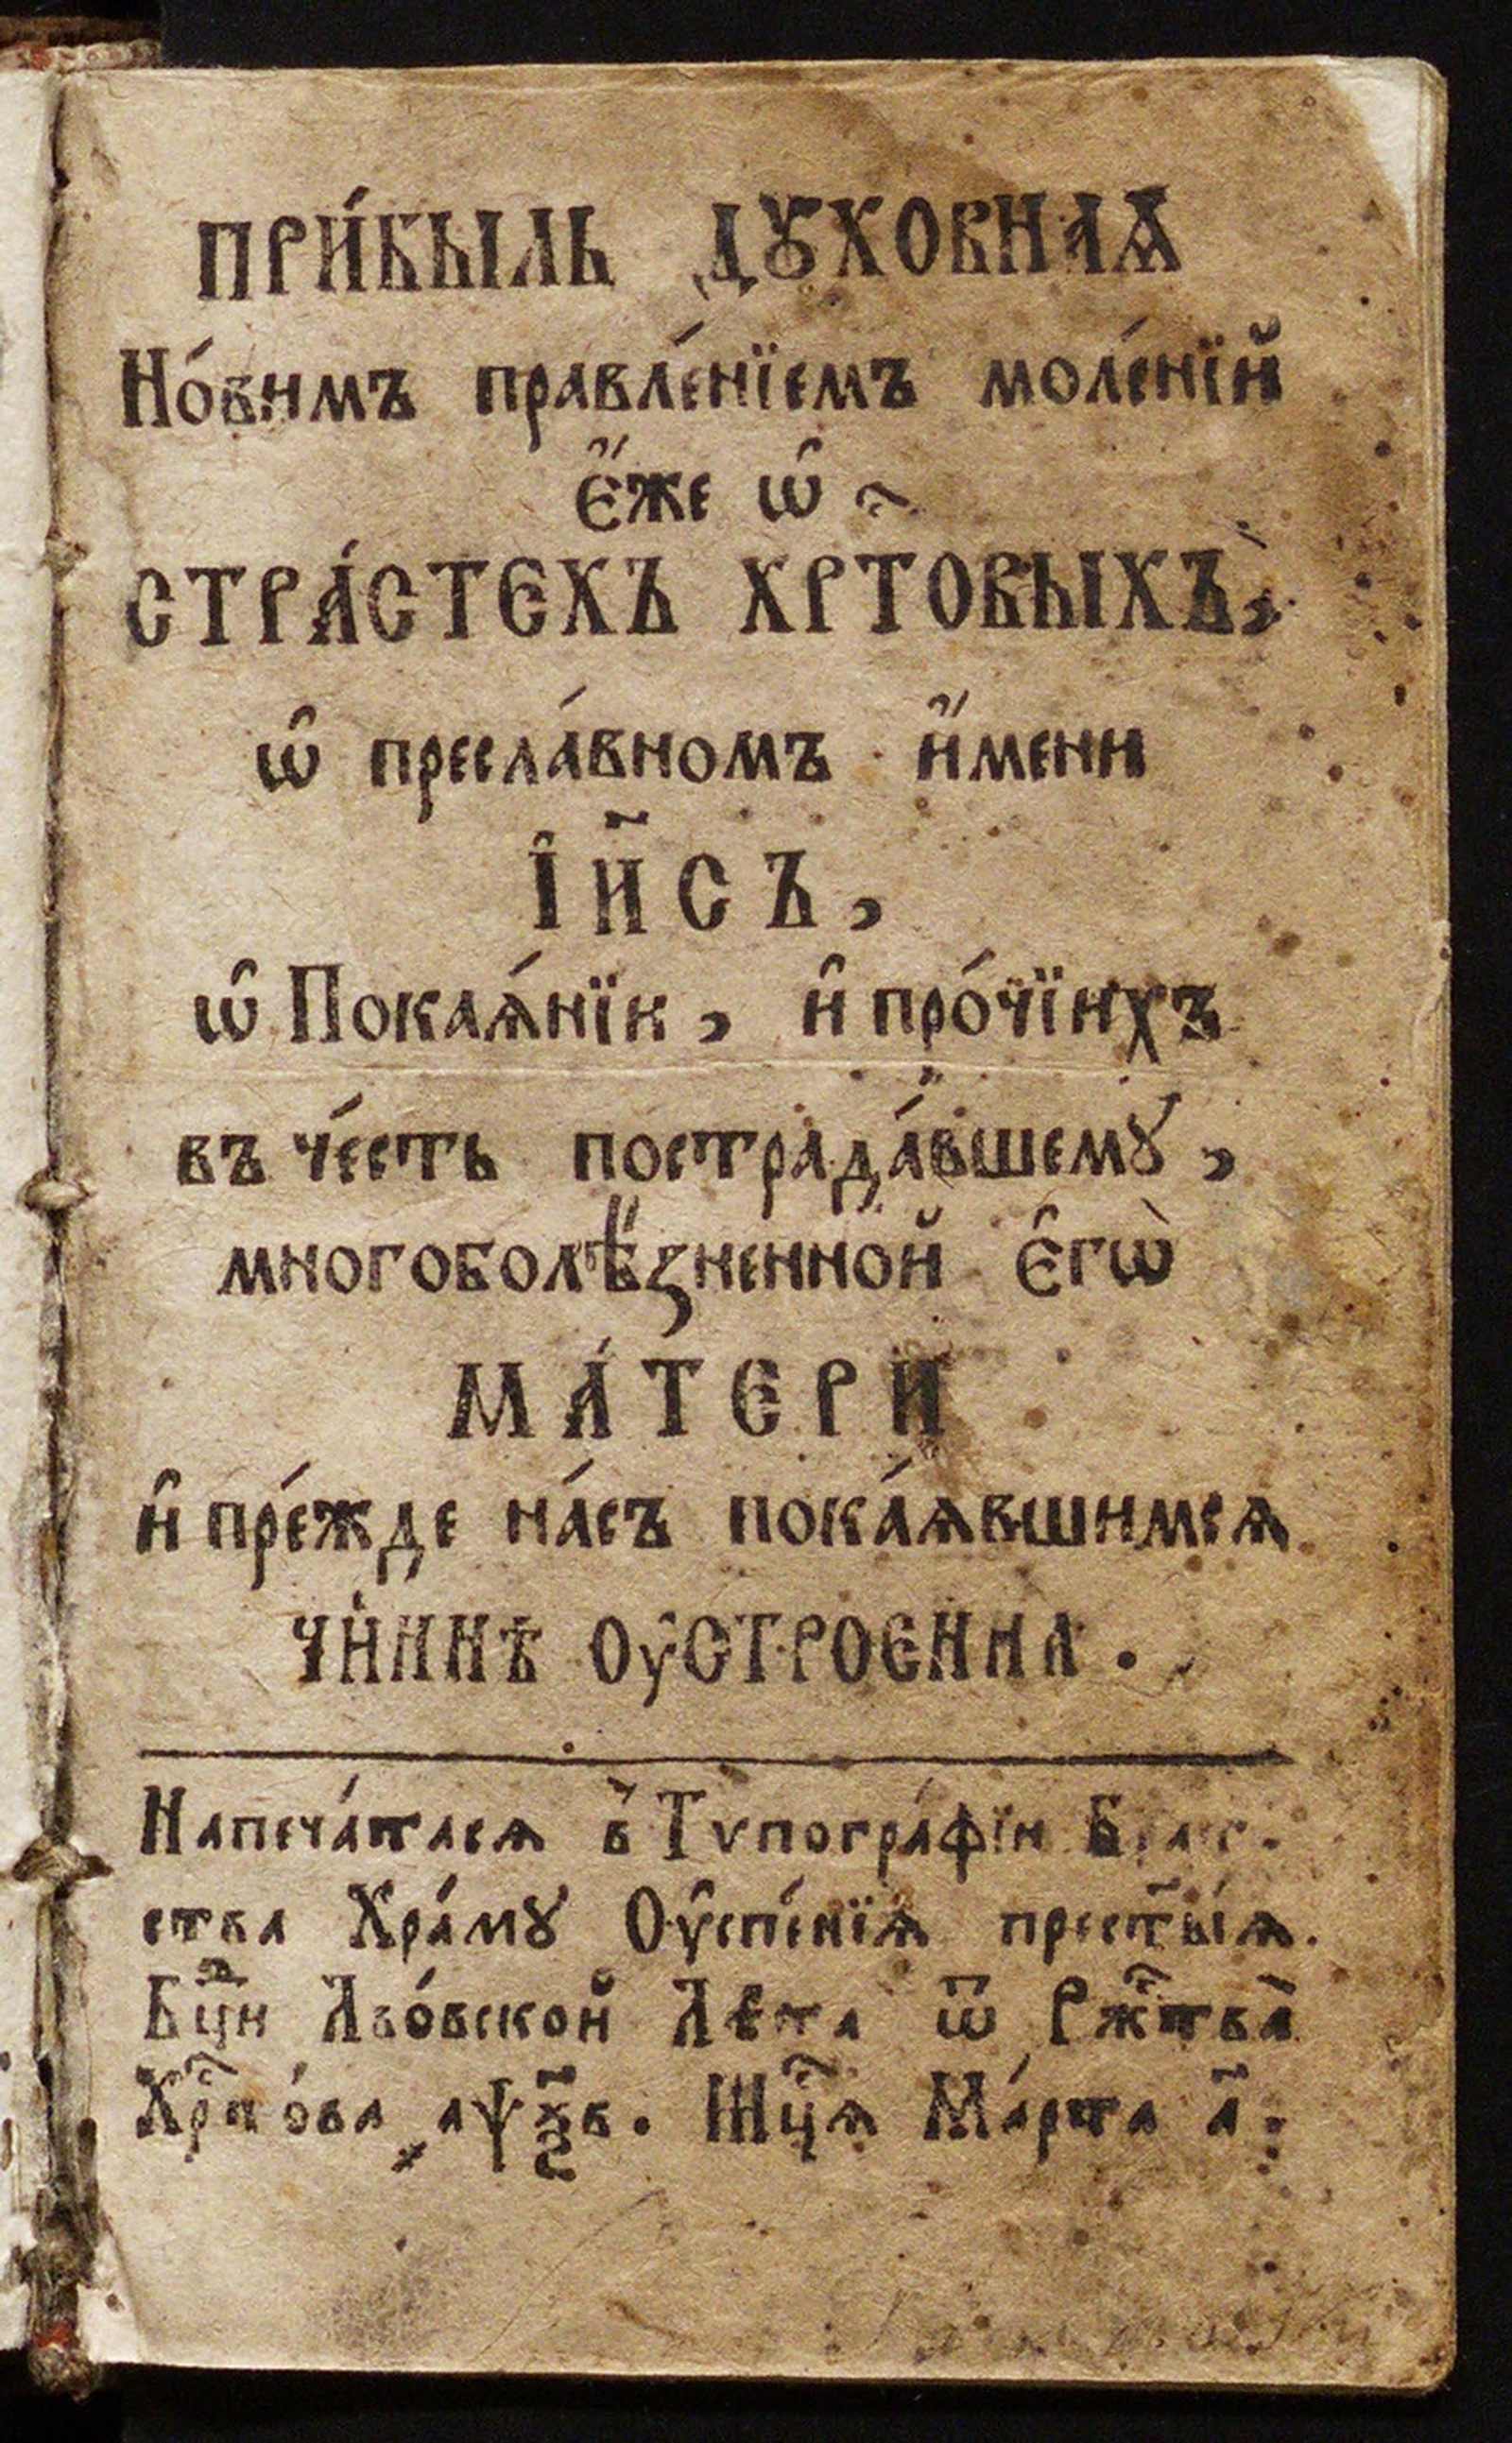 ПРИ́БЫЛЬ ДꙊХОВНАѦ
Но́вимъ правле́нїемъ моле́нїй
є҆́же ѡ҆
СТРА́СТЄХЪ ХРТ҃ОВЫХЪ̀,
ѡ҆ пресла́вномъ и҆́мени
І҆И҃СЪ,
ѡ҆ Покаѧ́нїи, и҆ про́чїихъ
въ че́сть пострада́вшемꙋ,
многоболѣ́зненной є҆гѡ̀
МА́ТЄРИ
и҆ пре́жде на́съ пока́ѧвшимсѧ
ЧИ́ННѢ ОУ҆СТРОЄННА.
Напеча́тасѧ в̾ Тѵпогра́фїи Брат-
ства Хра́мꙋ Оу҆спе́нїѧ прест҃ы́ѧ.
Бц҃и Лво́вской Лѣта ѿ Рж҃тва̀
Хр҃то́ва ҂аѱѯ҃в. Мц҃ѧ Ма́рта а҃: